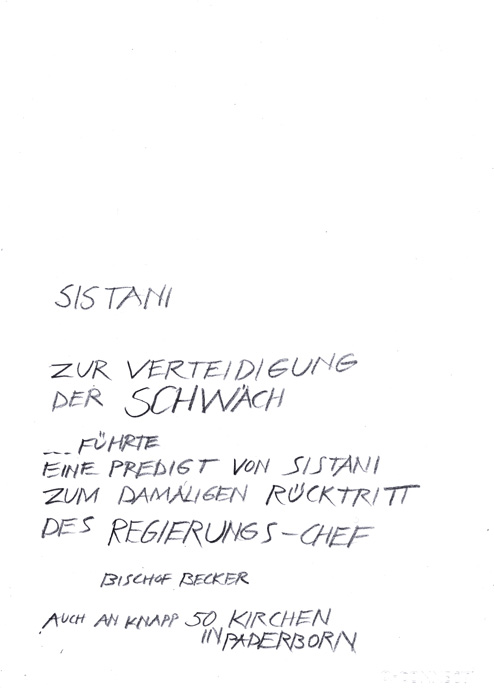 SISTANI
ZUR VERTEIDIGUNG
DER SCHWÄCH
... FÜHRTE
EINE PREDIGT VON SISTANI
ZUM DAMALIGEN RÜCKTRITT
DES REGIERUNGS-CHEF
BISCHOF BECKER
AUCH AN KNAPP 50 KIRCHEN
IN PADERBORN